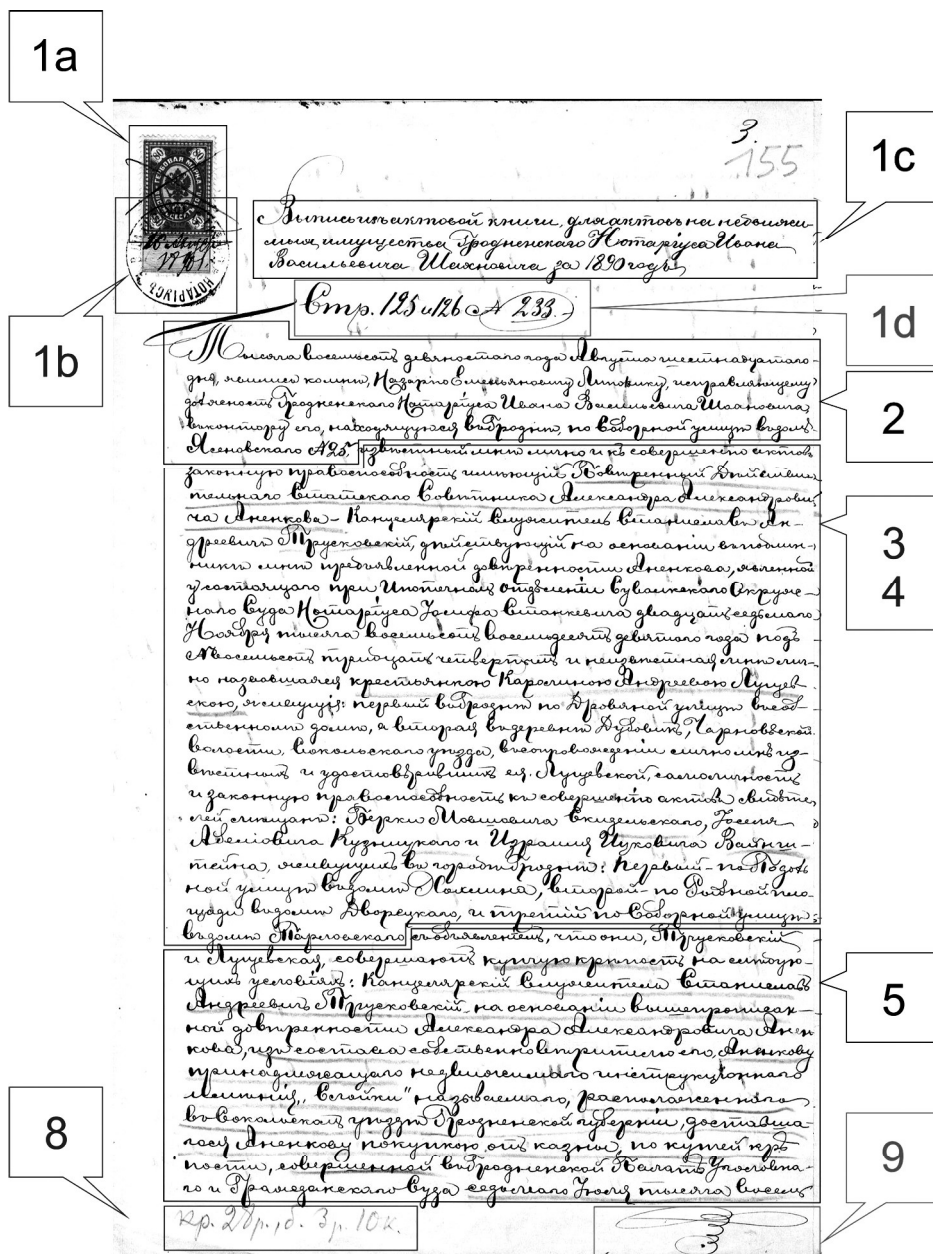 1a
3.
155
1c
Выпись изъ актовой книги для актовъ на недвижи-
мыя имущества Гродненскаго Нотаріуса Ивана
Васильевича Шахновича за 1890 годъ
НОТАРІУСЪ
1b
Стр. 125 и 126 № 233.
1d
Тысяча восемьсотъ девяностаго года Августа шестнадцатаго
дня, явились ко мнѣ, Назарію Емельяновичу Литовику, исправляющему
должность Гродненскаго Нотаріуса Ивана Васильевича Шахновича,
въ контору его, находящуюся въ Гроднѣ, по Соборной улицѣ въ домѣ
2
Ясеновскаго № 25, извѣстный мнѣ лично и къ совершенію актовъ
законную правоспособность имѣющій Повѣренный Дѣйстви-
тельнаго Статскаго Совѣтника Александра Александрови-
ча Аненкова - Канцелярскій Служитель Станиславъ Ан-
дреевичъ Трусковскій, дѣйствующій на основаніи въ подлин-
никѣ мнѣ предъявленной довѣренности Аненкова, явленной
у состоящаго при Ипотечномъ отдѣленіи Сувалкскаго Окруж-
наго Суда Нотаріуса Іосифа Станкевича двадцать седьмаго
Ноября тысяча восемьсотъ восемьдесятъ девятаго года подъ
№ восемьсотъ тридцать четвертымъ и неизвѣстная мнѣ лич-
но назвавшаяся крестьянкою Каролиною Андреевою Лущев-
скою, живущія: первый въ Гроднѣ по Дровяной улицѣ въ соб-
ственномъ домѣ, а вторая въ деревнѣ Дубовикъ, Чарновской
волости, Сокольскаго уѣзда, въ сопровожденіи лично мнѣ из-
вѣстныхъ и удостовѣрившихъ ея, Лущевской, самоличность
и законную правоспособность къ совершенію актовъ свидѣте-
лей мѣщанъ: Берки Мовшовича Скидельскаго, Іоселя
Абеліовича Кузницкаго и Израиля Ицковича Вайнги-
тейна, живущихъ въ городѣ Гроднѣ: первый - по
ной улицѣ въ домѣ второй - по Рыбной пло-
щади въ домѣ Дворецкаго, и третій по Соборной улицѣ
въ домѣ Тарловскаго съ объявленіемъ, что они, Трусковскій
3
4
и Лущевская, совершаютъ купчую крѣпость на слѣдую-
щихъ условіяхъ: Канцелярскій Служитель Станиславъ
Андреевичъ Трусковскій на основаніи вышепрописан-
ной довѣренности Александра Александровича Анен-
кова, изъ состава собственно вѣрителю его, Аненкову
принадлежащаго недвижимаго инструкціоннаго
имѣнія, „Слойки" называемаго, расположеннаго
въ Сокольскомъ уѣздѣ Гродненской губерніи, доставша-
гося Аненкову покупкою отъ казны, по купчей крѣ-
пости, совершенной въ Гродненской Палатѣ Уголовна-
го и Гражданскаго Суда седьмаго Іюля тысяча восемь
5
8
кр. 2 б. 3 р. 10 к.
9